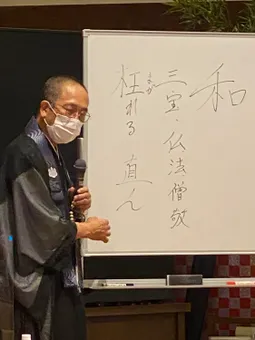 和
三宝・仏法僧敬
枉れる 直ん